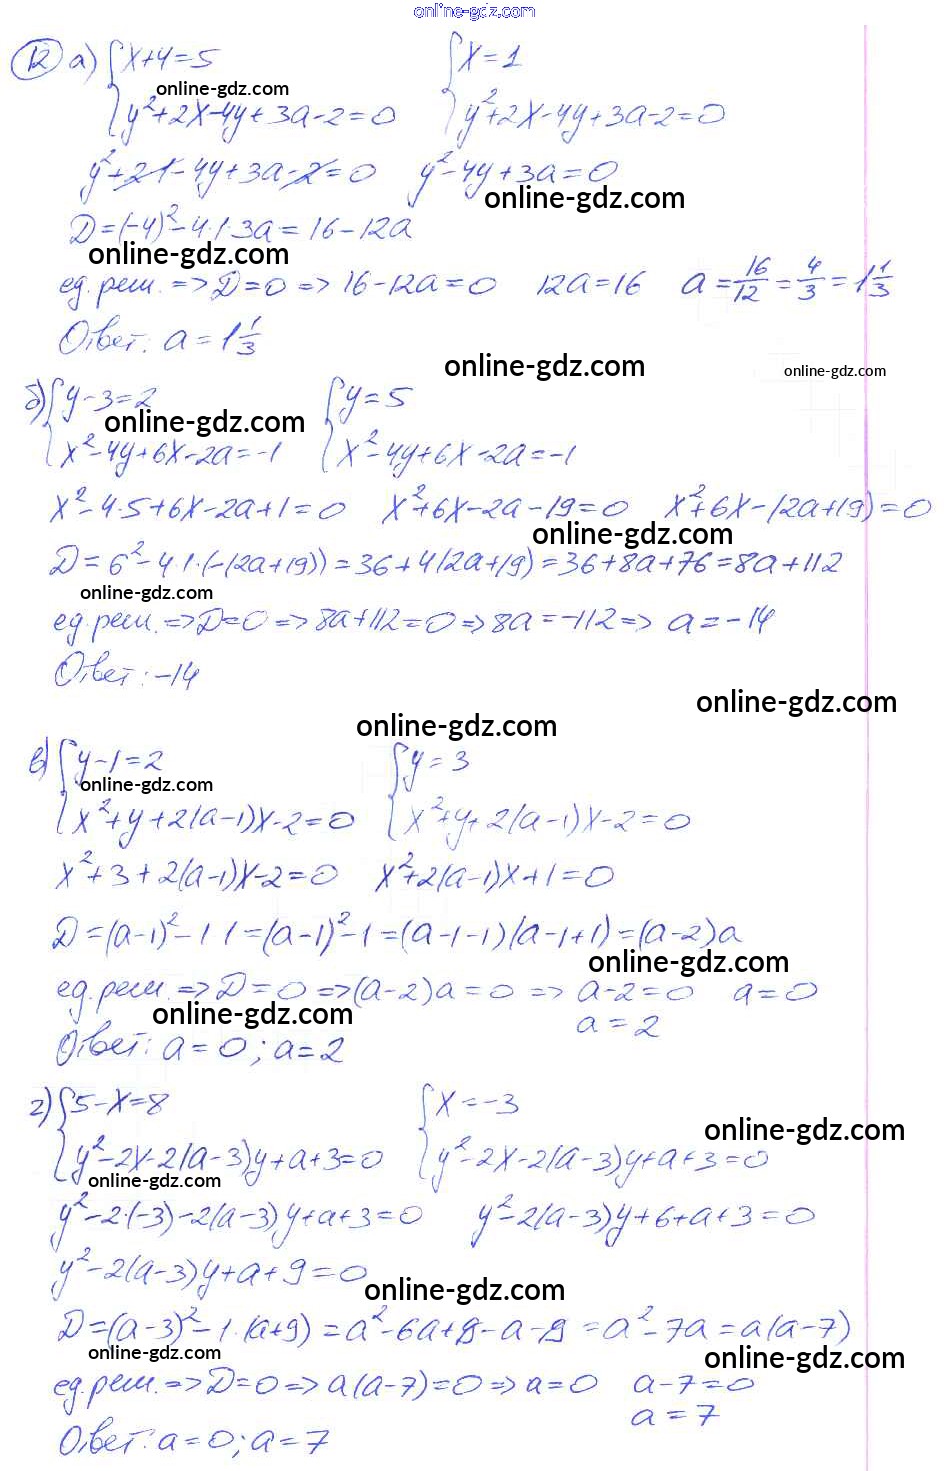 online-gdz.com
12 а) {x+4=5 {x=1
online-gdz.com
y²+2x-4y+3a-2=0 y²+2x-4y+3a-2=0
y²+2·1-4y+3a-2=0 y²-4y+3a=0
online-gdz.com
D=(-4)²-4·1·3a=16-12a
online-gdz.com
ед. реш. => D=0 => 16-12a=0 12a=16 a=16/12=4/3=1 1/3
Ответ: a=1 1/3
online-gdz.com online-gdz.com
б) {y-3=2 {y=5
online-gdz.com
x²-4y+6x-2a=-1 x²-4y+6x-2a=-1
x²-4·5+6x-2a+1=0 x²+6x-2a-19=0 x²+6x-(2a+19)=0
online-gdz.com
D=6²-4·1·(-(2a+19))=36+4(2a+19)=36+8a+76=8a+112
online-gdz.com
ед. реш. => D=0 => 8a+112=0 => 8a=-112 => a=-14
Ответ: -14
online-gdz.com
online-gdz.com
в) {y-1=2 {y=3
online-gdz.com
x²+y+2(a-1)x-2=0 x²+y+2(a-1)x-2=0
x²+3+2(a-1)x-2=0 x²+2(a-1)x+1=0
D=(a-1)²-1·1=(a-1)²-1=(a-1-1)(a-1+1)=(a-2)a
online-gdz.com
ед. реш. => D=0 => (a-2)a=0 => a-2=0 a=0
online-gdz.com a=2
Ответ: a=0; a=2
г) {5-x=8 {x=-3
online-gdz.com
y²-2x-2(a-3)y+a+3=0 y²-2x-2(a-3)y+a+3=0
online-gdz.com
y²-2·(-3)-2(a-3)y+a+3=0 y²-2(a-3)y+6+a+3=0
y²-2(a-3)y+a+9=0
online-gdz.com
D=(a-3)²-1·(a+9)=a²-6a+9-a-9=a²-7a=a(a-7)
online-gdz.com online-gdz.com
ед. реш. => D=0 => a(a-7)=0 => a=0 a-7=0
a=7
Ответ: a=0; a=7